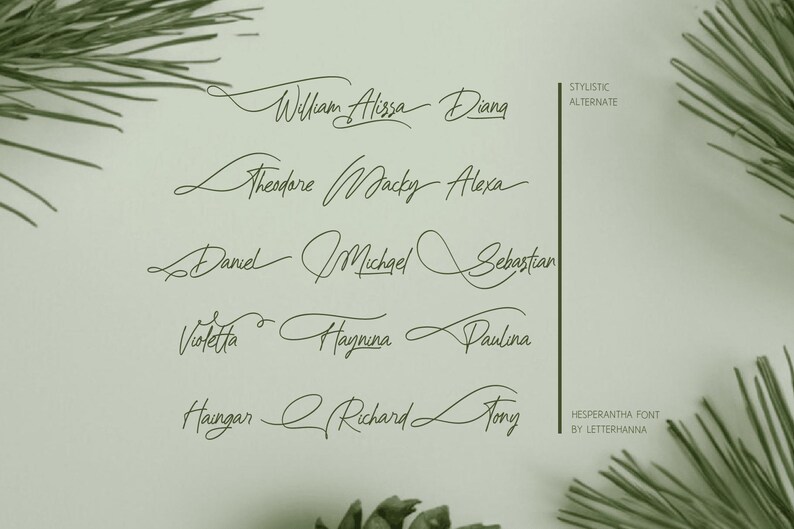 William Alissa Diana
Theodore Macky Alexa
Daniel Michael Sebastian
Violetta Haynina Paulina
Haingar Richard Tony
STYLISTIC
ALTERNATE
HESPERANTHA FONT
BY LETTERHANNA